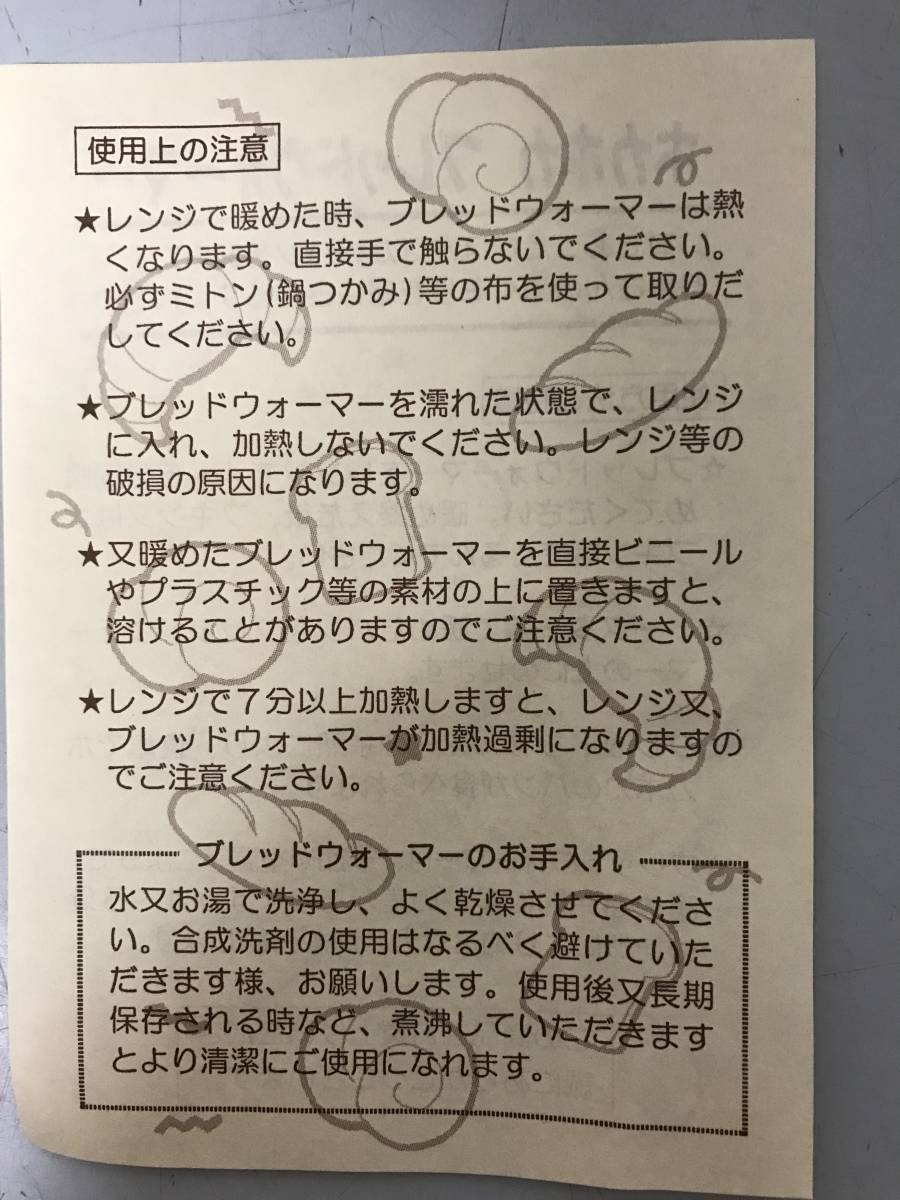 使用上の注意
★レンジで暖めた時、ブレッドウォーマーは熱
くなります。直接手で触らないでください。
必ずミトン(鍋つかみ)等の布を使って取りだ
してください。
★ブレッドウォーマーを濡れた状態で、レンジ
に入れ、加熱しないでください。レンジ等の
破損の原因になります。
★又暖めたブレッドウォーマーを直接ビニール
やプラスチック等の素材の上に置きますと、
溶けることがありますのでご注意ください。
★レンジで7分以上加熱しますと、レンジ又、
ブレッドウォーマーが加熱過剰になりますの
でご注意ください。
ブレッドウォーマーのお手入れ
水又お湯で洗浄し、よく乾燥させてくださ
い。合成洗剤の使用はなるべく避けていた
だきます様、お願いします。使用後又長期
保存される時など、煮沸していただきます
とより清潔にご使用になれます。